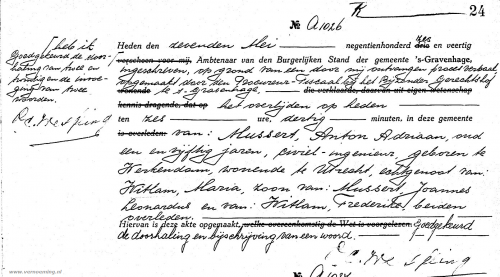 № A1026
K
24
Heden den zevenden Mei negentienhonderd zes en veertig
verscheen voor mij, Ambtenaar van den Burgerlijken Stand der gemeente 's-Gravenhage,
ingeschreven, op grond van een door mij ontvangen proces verbaal
opgemaakt door den Procureur-Fiscaal bij het Bijzonder Gerechtshof
te 's-Gravenhage die verklaarde, daarvan uit eigen wetenschap
kennis dragende, dat op het overlijden op heden
ten zes ure, dertig minuten, in deze gemeente
is overleden: van: Mussert, Anton Adriaan, oud
een en vijftig jaren, civiel-ingenieur, geboren te
Werkendam, wonende te Utrecht, echtgenoot van
Witlam, Maria, zoon van: Mussert, Joannes
Leonardus en van: Witlam, Frederika, beiden
overleden.
Hiervan is deze akte opgemaakt, welke overeenkomstig de Wet is voorgelezen. Goedgekeurd
de doorhaling en bijschrijving van een woord.
Goedgekeurd de door-
haling van twee en
en de invoe-
ging van twee
woorden.
№ A1027
www.verovering.nl